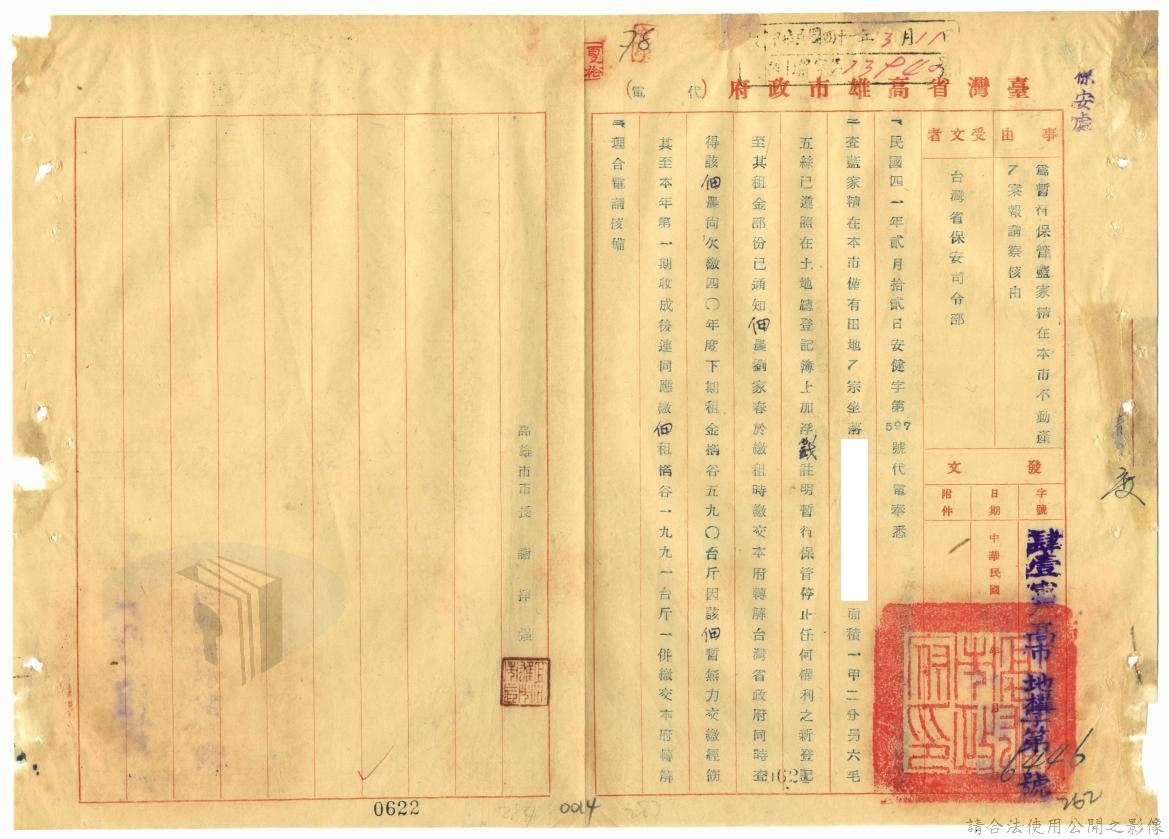 保安處
臺灣省高雄市政府（代電）
中華民國四十一年3月1八
78
事由
為暫行保管藍家精在本市不動產
乙案報請察核由
受文者
台灣省保安司令部
發文
字號
肆壹 高市地權字第6446號
日期
中華民國
附件
一、民國四一年貳月拾貳日安健字第597號代電奉悉
二、查藍家精在本市僅有田地乙宗坐落
面積一甲二分另六毛
五絲已遵照在土地總登記簿上加浮籤註明暫行保管停止任何權利之新登記
至其租金部份已通知佃農劉家春於繳租時繳交本府轉解台灣省政府同時查
得該佃農尚欠繳四〇年度下期租金稻谷五九〇台斤因該佃暫無力交繳經飭
其至本年第一期收成後連同應繳佃租稻谷一九九一台斤一併繳交本府轉解
三、理合電請核備
高雄市市長 謝掙強
262
0622
0014
請合法使用公開之影像